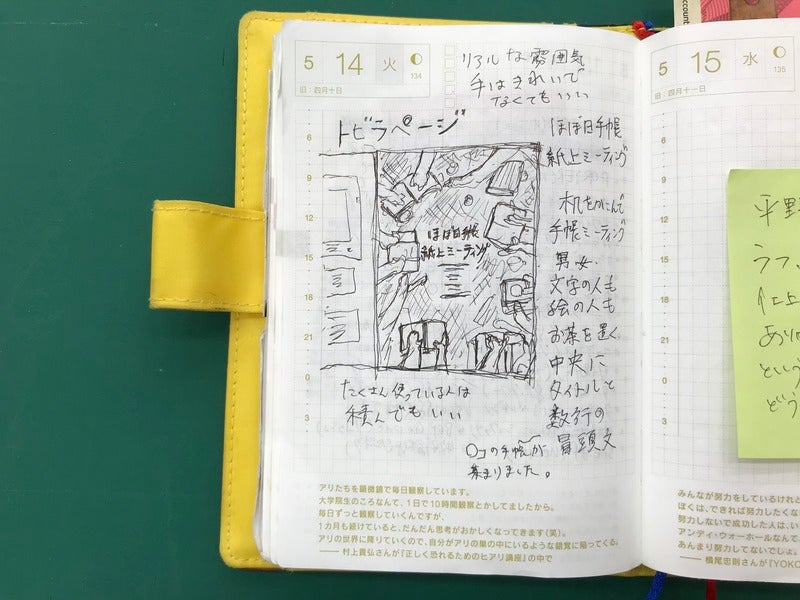 5 14 火 134
旧：四月十日
リアルな雰囲気
手はきれいで
なくてもいい
トビラページ
ほぼ日手帳
紙上ミーティング
ほぼ日手帳
紙上ミーティング
机をかこんで
手帳ミーティング
男女、
文字の人も
絵の人も
お茶を置く
中央に
タイトルと
数行の
冒頭文
たくさん使っている人は
積んでもいい
〇コの手帳が
集まりました。
6
9
12
15
18
21
0
3
アリたちを顕微鏡で毎日観察しています。
大学院生のころなんて、1日で10時間観察とかしてましたから。
毎日ずっと観察していくんですが、
1カ月も続けていると、だんだん思考がおかしくなってきます(笑)。
アリの世界に降りていくので、自分がアリの巣の中にいるような錯覚に陥ってくる。
——村上貴弘さんが『正しく恐れるためのヒアリ講座』の中で
5 15 水 135
旧：四月十一日
6
9
12
15
18
21
0
3
平野
うフ、
仕上
あり
という
どう
みんなが努力をしているけれど
ぼくは、できれば努力したくな
努力しないで成功した人は、い
アンディ・ウォーホールなんて
あんまり努力してないでしょ。
——横尾忠則さんが『YOKO
account